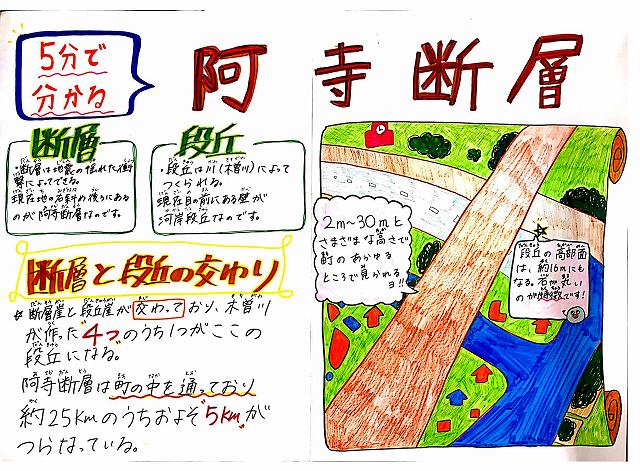 5分で
分かる
阿寺断層
断層
・断層は地震の揺れた衝
撃によってできる。
現在地の右斜め後ろにある
のが阿寺断層なのです。
段丘
・段丘は川(木曽川)によって
つくられる。
現在目の前にある壁が
河岸段丘なのです。
断層と段丘の交わり
断層崖と段丘崖が交わっており、木曽川
が作った"4つ"のうち1つがここの
段丘になる。
阿寺断層は町の中を通っており
約25kmのうちおよそ"5km"が
つらなっている。
2m〜30mと
さまざまな高さで
町のあらゆる
ところで見られる
ヨ!!
段丘の高部面
は、約16mにも
なる。石が丸い
のが特徴です!